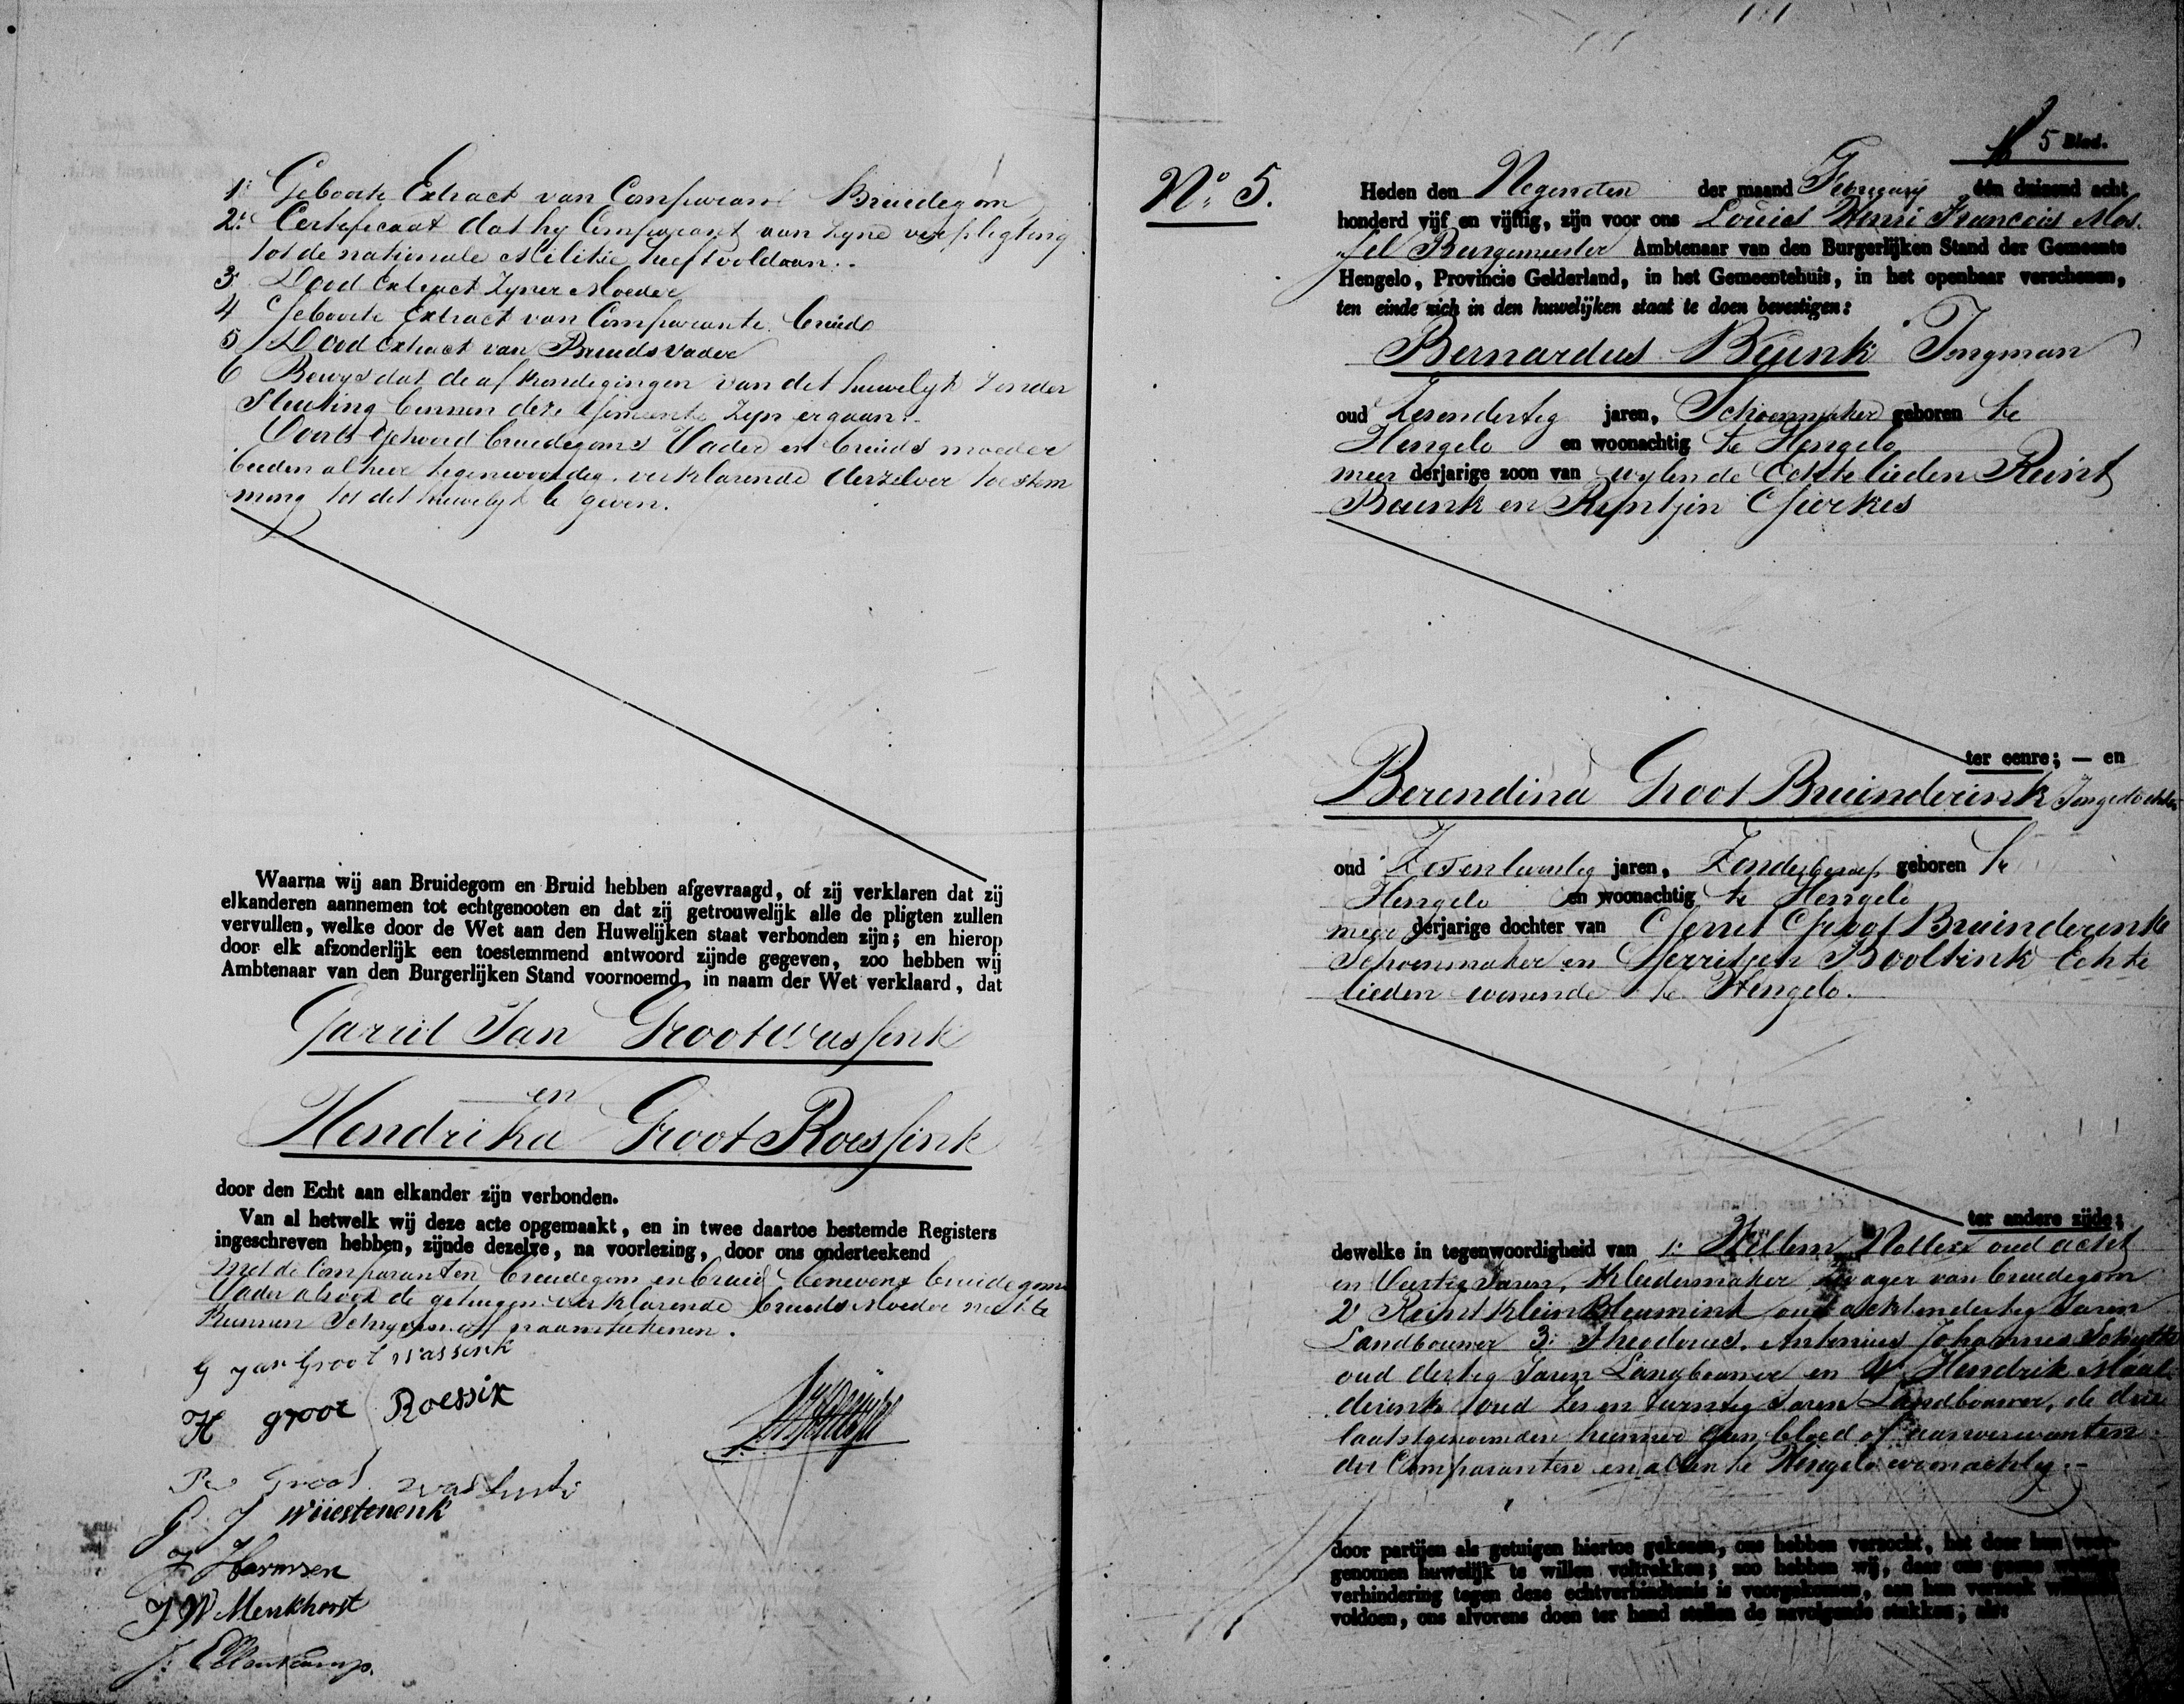 1e Geboorte Extract van Comparant Bruidegom
2e Certificaat dat hy Comparant aan zyne verpligting
tot de nationale Militie heeft voldaan.
3 Dood Extract zyner Moeder
4 Geboorte Extract van Comparante bruid
5 Dood Extract van Bruids vader
6 Bewys dat de afkondigingen van dit huwelyk zonder
stuiting binnen deze Gemeente zyn ergaan.
Voorts gehoord bruidegoms Vader en bruids moeder
beiden alhier tegenwoordig verklarende derzelver toestem
ming tot dit huwelyk te geven.
Waarna wij aan Bruidegom en Bruid hebben afgevraagd, of zij verklaren dat zij
elkanderen aannemen tot echtgenooten en dat zij getrouwelijk alle de pligten zullen
vervullen, welke door de Wet aan den Huwelijken staat verbonden zijn; en hierop
door elk afzonderlijk een toestemmend antwoord zijnde gegeven, zoo hebben wij
Ambtenaar van den Burgerlijken Stand voornoemd, in naam der Wet verklaard, dat
Garrit Jan Grootwassink
en
Hendrika Groot Roessink
door den Echt aan elkander zijn verbonden.
Van al hetwelk wij deze acte opgemaakt, en in twee daartoe bestemde Registers
ingeschreven hebben, zijnde dezelve, na voorlezing, door ons onderteekend
met de Comparanten bruidegom en bruid, benevens bruidegoms
Vader alsook de getuigen verklarende bruids Moeder niet te
kunnen Schryven off naamtekenen.
G Jan Groot Wassink
H groot Roessink
Groot Wassink
G J Wüestenenk
J Harmsen
J W Menkhorst
J. Ellenkamp.
5 Blad.
No. 5.
Heden den Negenden der maand February één duizend acht
honderd vijf en vijftig, zijn voor ons Louis Henri Francois Mos
sel Burgemeester Ambtenaar van den Burgerlijken Stand der Gemeente
Hengelo, Provincie Gelderland, in het Gemeentehuis, in het openbaar verschenen,
ten einde zich in den huwelijken staat te doen bevestigen:
Bernardus Buunk Jongman
oud Zesendertig jaren, Schoenmaker geboren te
Hengelo en woonachtig te Hengelo
meer derjarige zoon van wylen de Echtelieden Reint
Buunk en Reintjen Gierkes
ter eenre; — en
Berendina Groot Bruinderink Jongedochter
oud Zesentwintig jaren, Zonder beroep geboren te
Hengelo en woonachtig te Hengelo
meer derjarige dochter van Gerrit Groot Bruinderink
Schoenmaker en Gerritjen Booltink Echte
lieden wonende te Hengelo.
ter andere zijde;
dewelke in tegenwoordigheid van 1: Willem Wolters oud acht
en Veertig Jaren, Kledermaker Zwager van bruidegom
2 Reint Klein Bleumink oud achtendertig Jaren
Landbouwer 3: Theodorus Antonius Johannes Schutte
oud dertig Jaren Landbouwer en 4 Hendrik Maal
derink oud Zes en twintig Jaren Landbouwer, de drie
laatstgenoemden hunner geen bloed of aanverwanten
der Comparanten en allen te Hengelo woonachtig.
door partijen als getuigen hiertoe gekozen, ons hebben verzocht, het door hen voor-
genomen huwelijk te willen voltrekken; zoo hebben wij, daar ons geene wettige
verhindering tegen deze echtverbindtenis is voorgekomen, aan hun verzoek willende
voldoen, ons alvorens doen ter hand stellen de navolgende stukken; als: